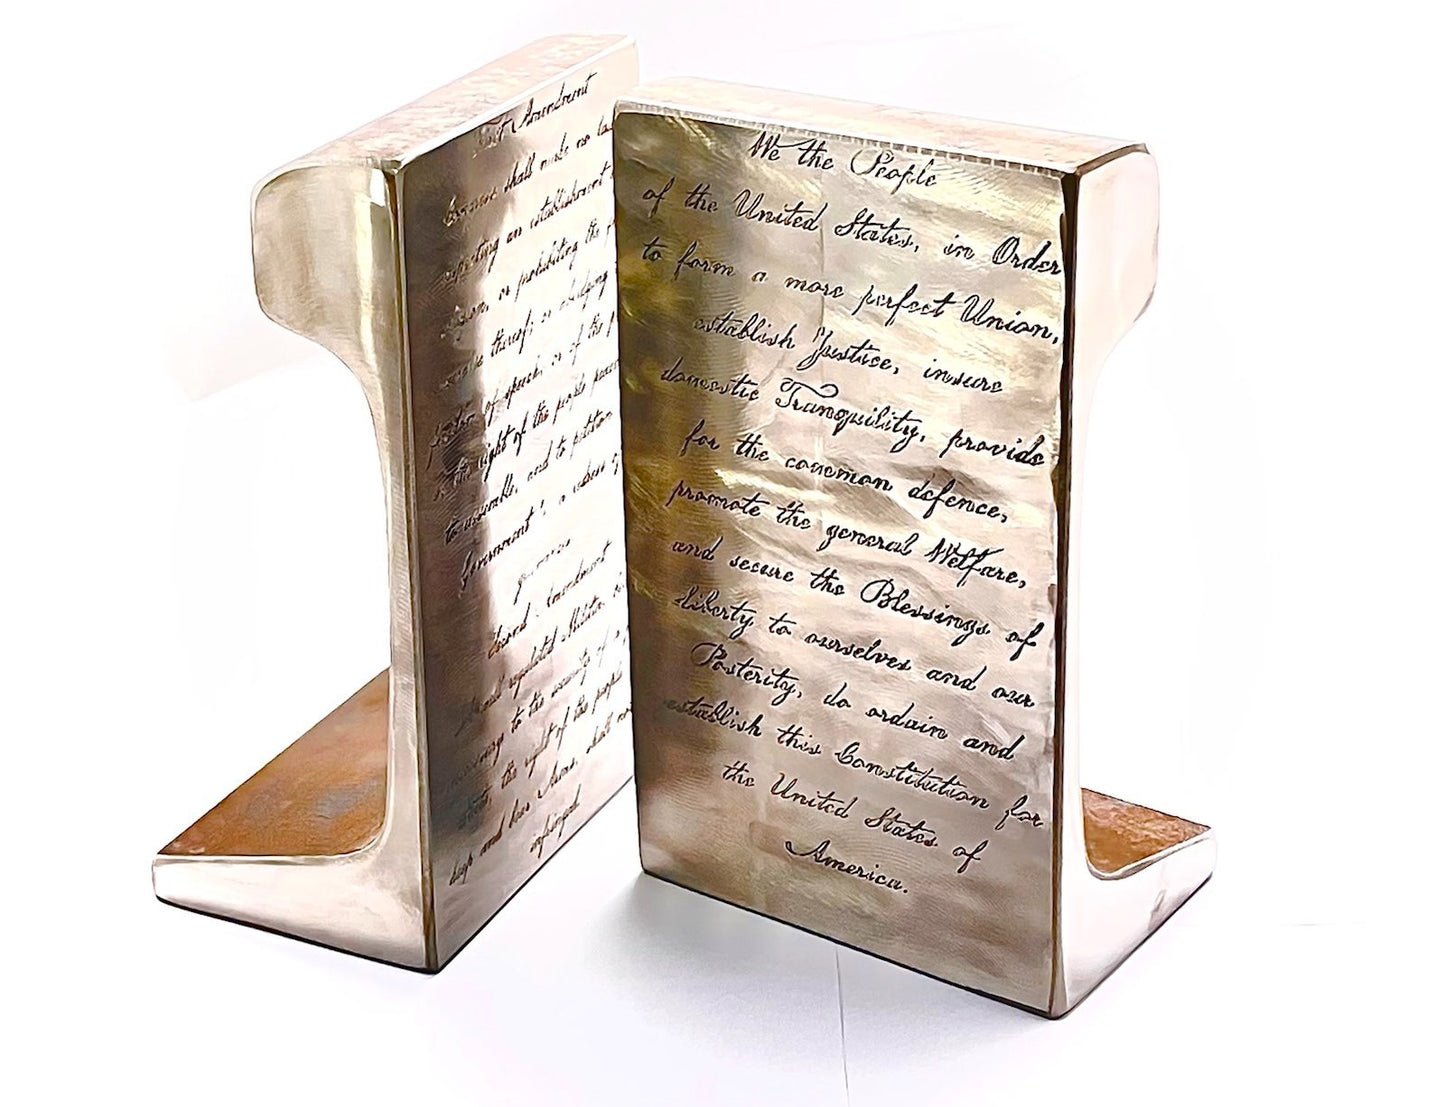 First Amendment
shall make no la
an establishment
or prohibiting the
thereof; or abridging
of speech, or of the
the right of the people
to assemble, and to petition
Government a redress
grievances
Second Amendment
regulated Militia,
necessary to the security of
the right of the people
keep and bear Arms, shall no
infringed
We the People
of the United States, in Order
to form a more perfect Union,
establish Justice, insure
domestic Tranquility, provide
for the common defence,
promote the general Welfare,
and secure the Blessings of
liberty to ourselves and our
Posterity, do ordain and
establish this Constitution for
the United States of
America.